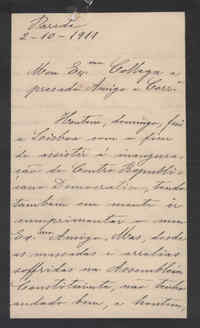 Parede
2-10-1911
Meu Ex.mo Collega e
presado Amigo e Corr.
Hontem, domingo, fui
a Lisboa com o fim
de assistir á inaugura-
ção do Centro Republi-
cano Democratico, tendo
tambem em mente ir
cumprimentar o meu
Ex.mo Amigo. Mas, desde
as massadas e arrelias
soffridas na Assembleia
Constituinte, não tenho
andado bem, e hontem,